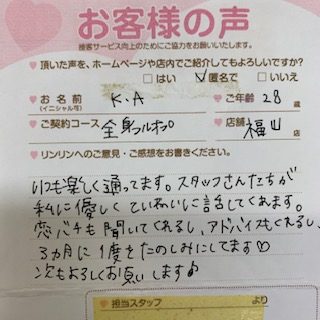 お客様の声
接客サービス向上のためにご協力をお願いいたします。
頂いた声を、ホームページや店内でご紹介してもよろしいですか?
はい 匿名で いいえ
お名前 K.A ご年齢 28 歳
(イニシャル可)
ご契約コース 全身フルオプ 店舗 福山 店
リンリンへのご意見・ご感想をお書きください。
いつも楽しく通ってます。スタッフさんたちが
私に優しくていねいに話してくれます。
恋バナも聞いてくれるし、アドバイスもくれるし、
3カ月に1度をたのしみにしてます♡
次もよろしくお願いします♪
担当スタッフ より